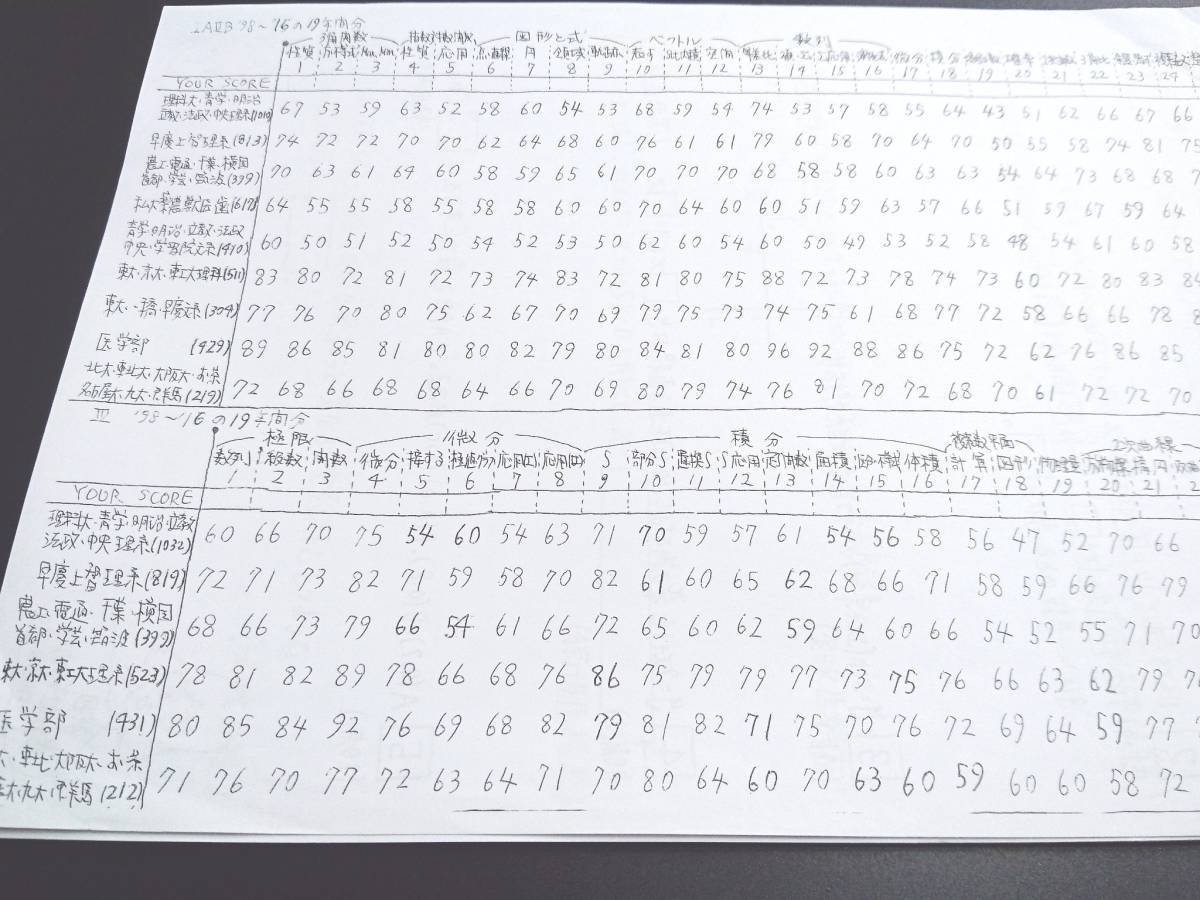 ⅠAⅡB '98～'16の19年間分
三角関数 指数対数関数 図形と式 ベクトル 数列
性質 方程式 Max,Min 性質 応用 点・直線 円 領域 軌跡 空間 微分 積分
1 2 3 4 5 6 7 8 9 10 11 12 13 14 15 16 17 18 19 20 21 22 23 24
YOUR SCORE
理科大・青学・明治
立教・法政・中央理系(1010) 67 53 59 63 52 58 60 54 53 68 59 54 74 53 57 58 55 64 43 51 62 66 67 66
早慶上智理系(813) 74 72 72 70 70 62 64 68 60 76 61 61 79 60 58 70 64 70 50 55 58 74 81 75
農工・電通・千葉・横国
首都・学芸・筑波(399) 70 63 61 64 60 58 59 65 61 70 70 70 68 58 58 60 63 63 54 64 73 68 68
私大薬農獣医歯(617) 64 55 55 58 55 58 58 60 60 70 64 60 60 51 59 63 57 66 51 59 67 59 64
青学・明治・立教・法政
中央・学習院文系(410) 60 50 51 52 50 54 52 53 50 62 60 54 60 50 49 53 52 58 48 54 61 60 58
東大・京大・東工大理科(511) 83 80 72 81 72 73 74 83 72 81 80 75 88 72 73 78 74 73 60 72 80 83
東大・一橋・早慶文系(304) 77 76 70 80 75 62 67 70 69 79 75 73 74 75 61 68 77 72 58 66 66 78
医学部 (429) 89 86 85 81 80 80 82 79 80 84 81 80 96 92 88 86 75 72 62 76 86 85
北大・東北大・大阪大・お茶
名古屋大・九大・群馬(219) 72 68 66 68 68 64 66 70 69 80 79 74 76 81 70 72 68 70 61 72 72 70
Ⅲ '98～'16の19年間分
極限 微分 積分 複素数平面 2次曲線
数列 級数 関数 微分 接する 応用(Ⅰ) 応用(Ⅱ) ∫ 部分∫ 置換∫ ∫応用 定関数 面積 体積 計算 図形 円
1 2 3 4 5 6 7 8 9 10 11 12 13 14 15 16 17 18 19 20 21
YOUR SCORE
理科大・青学・明治・立教
法政・中央理系(1032) 60 66 70 75 54 60 54 63 71 70 59 57 61 54 56 58 56 47 52 70 66
早慶上智理系(819) 72 71 73 82 71 59 58 70 82 61 60 65 62 68 66 71 58 59 66 76 79
農工・電通・千葉・横国
首都・学芸・筑波(399) 68 66 73 79 66 54 61 66 72 65 60 62 59 64 60 66 54 52 55 71 70
東大・京大・東工大理系(523) 78 81 82 89 78 66 68 76 86 75 79 79 77 73 75 76 66 63 62 79
医学部 (431) 80 85 84 92 76 69 68 82 79 81 82 71 75 70 76 72 69 64 59 77
大・東北・大阪大・お茶
大・九大・群馬(212) 71 76 70 77 72 63 64 71 70 80 64 60 70 63 60 59 60 60 58 72